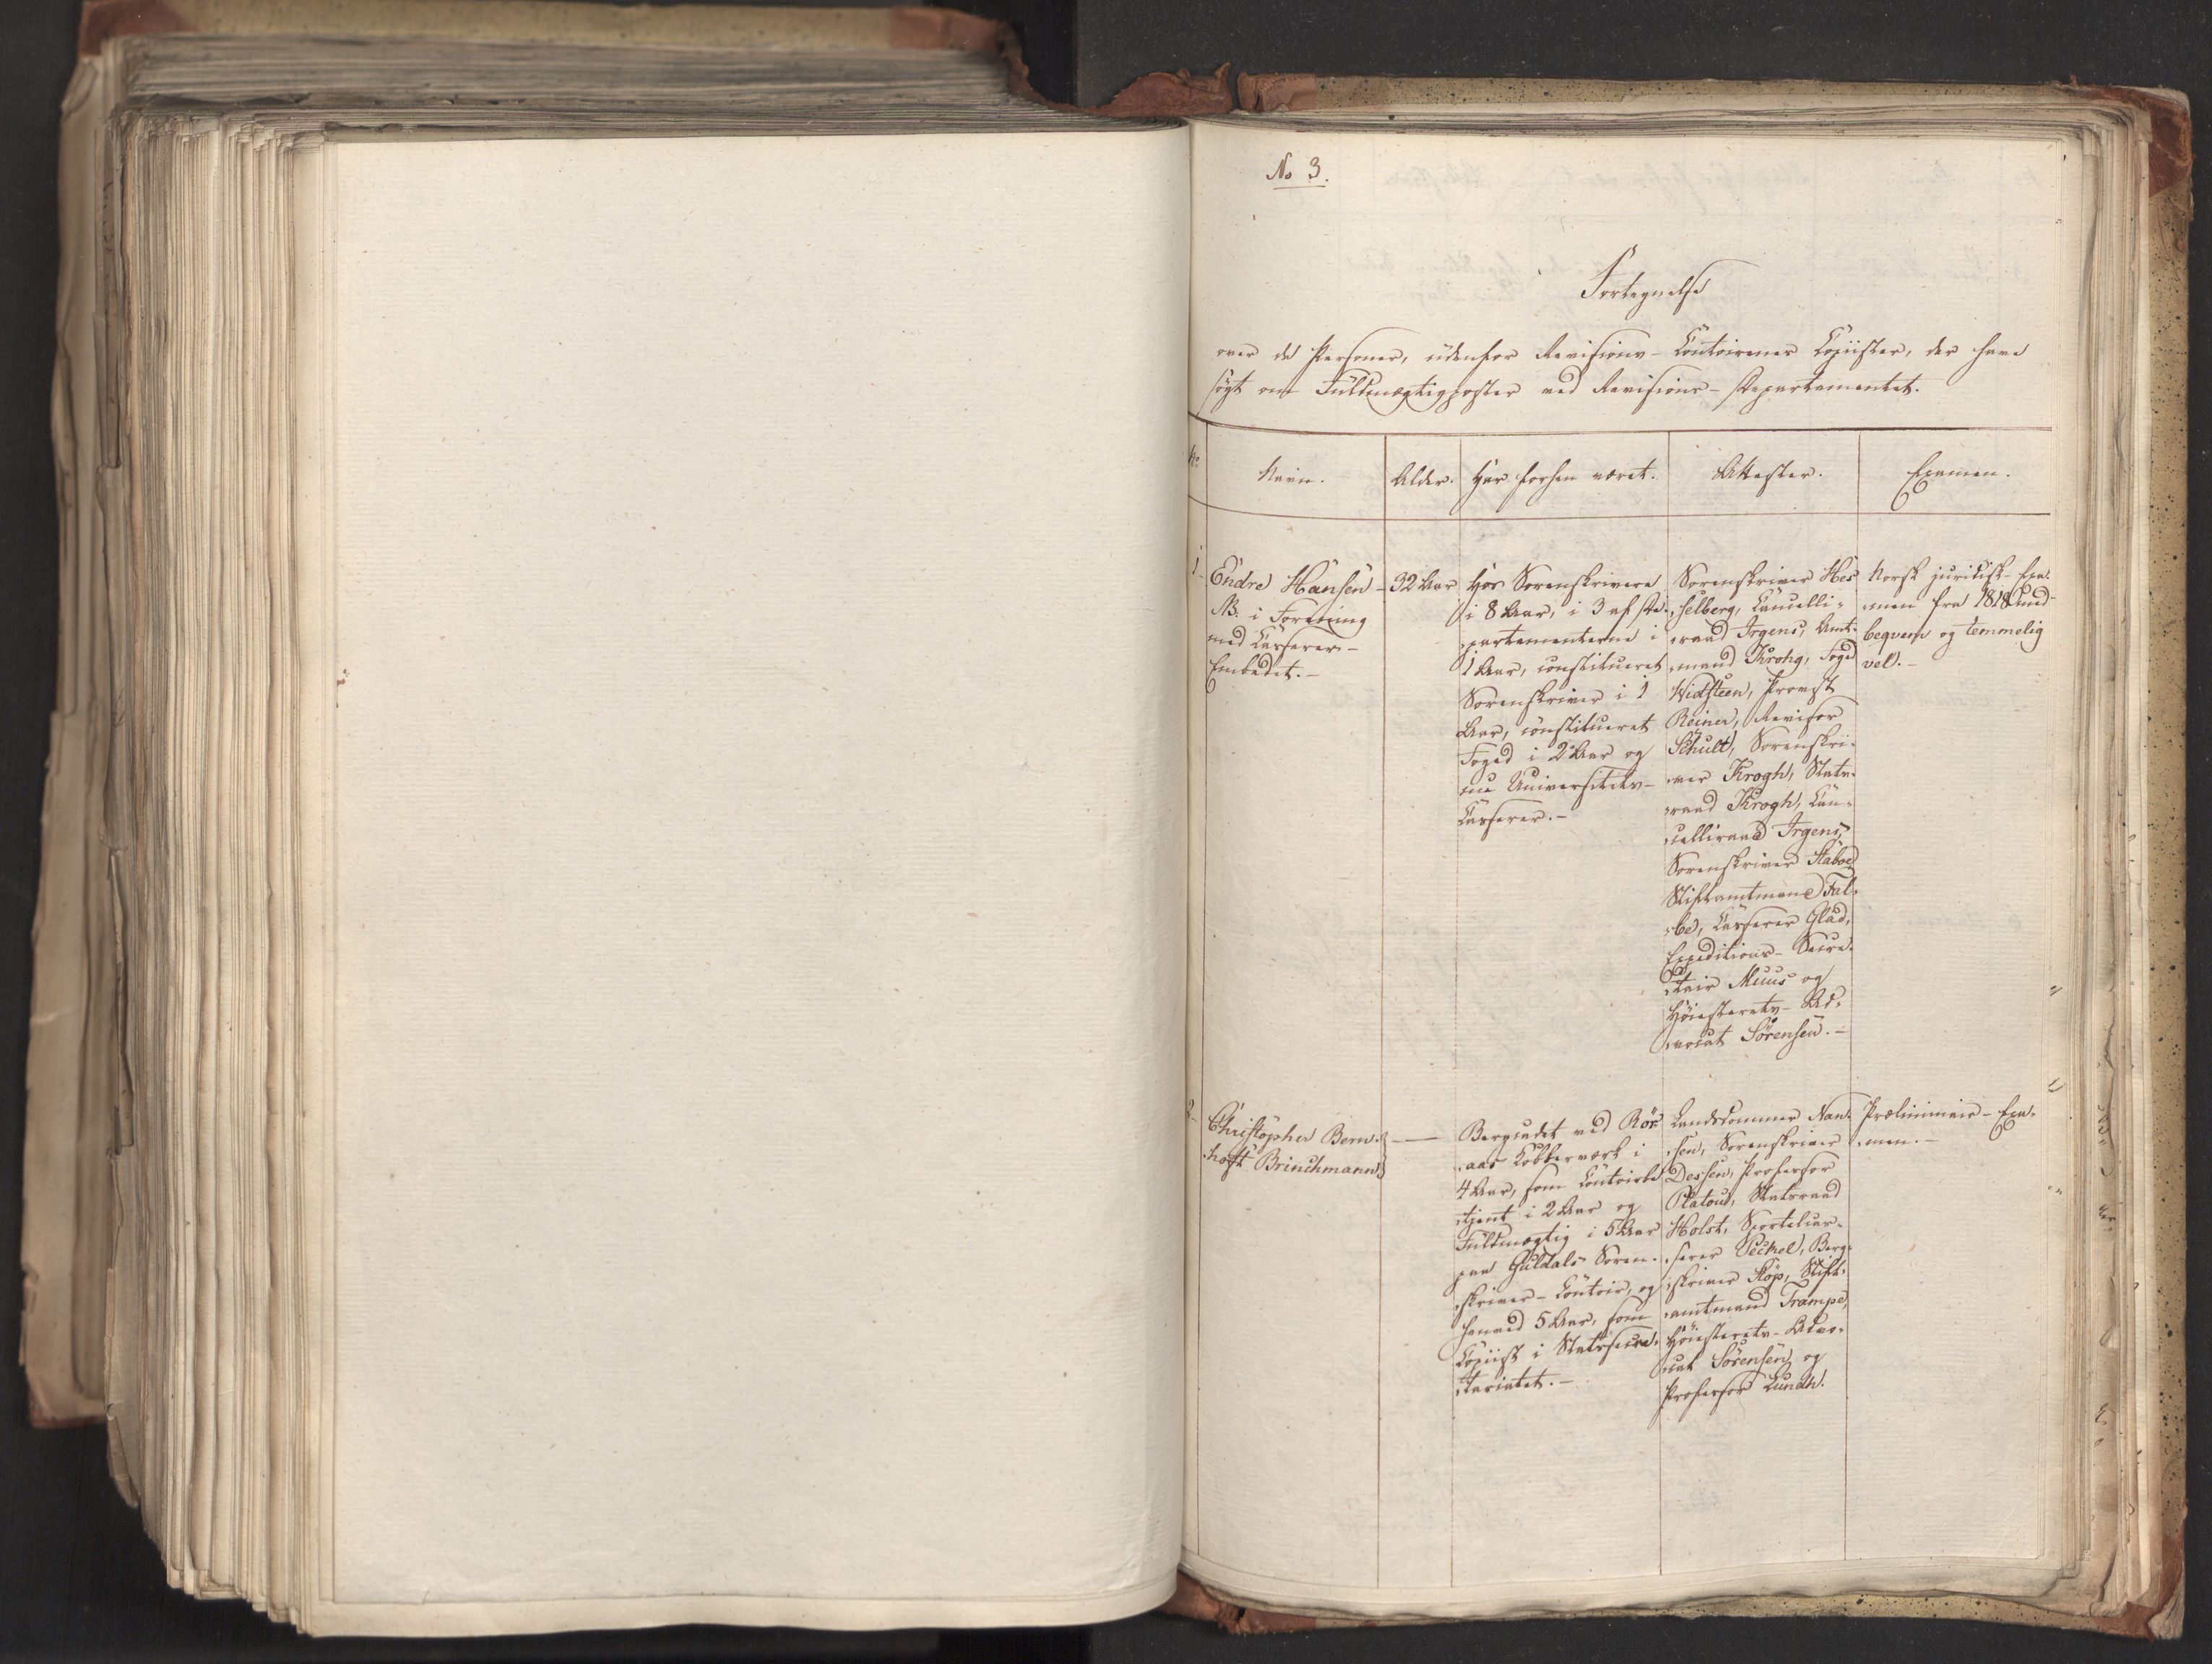 No 3.
Fortegnelse
over de Personer, udenfor Revisions-Contoirernes Copiister, der have
søgt om Fuldmægtigposter ved Revisions-Departementet.
No
Navn.
Alder.
Har forhen været.
Attester.
Examen.
1.
Endre Hansen-
NB. i Forening
med Casserer-
Embedet.-
32 Aar
Hos Sorenskrivere
i 8 Aar, i 3 af De-
partementerne i
1 Aar, constitueret
Sorenskriver i 1
Aar, constitueret
Foged i 2 Aar og
nu Universitets-
Casserer.-
Sorenskriver Hes
selberg, Cancelli-
raad Irgens, Amt-
mand Krohg, Foged
Widsteen, Provst
Reiner, Revisor
Schult, Sorenskri-
ver Krogh, Stats-
raad Krogh, Can-
celliraad Irgens,
Sorenskriver Staboe
Stiftamtmand Fal-
be, Casserer Glad,
Expeditions-Secre-
tair Muus og
Høiesterets-Ad-
vocat Sørensen.-
Norsk juridisk-Exa-
men fra 1818 med
beqvem og temmelig
vel.-
2.
Christopher Bern-
hoft Brinchmann
Bergcadet ved Rör
aas Kobberværk i
4 Aar, som Contoirbe
tjent i 2 Aar og
Fuldmægtig i 5 Aar
paa Guldals Soren-
skriver-Contoir, og
henved 5 Aar, som
Copiist i Statssecre-
tariatet.-
Landsdommer Nan-
sen, Sorenskriver
Dessen, Professor
Platou, Statsraad
Holst, Sportelcas-
serer Peckel, Berg-
skriver Støp, Stift-
amtmand Trampe,
Høiesterets-Advo-
cat Sörensen og
Professor Lundh.
Præliminair-Exa-
men.-